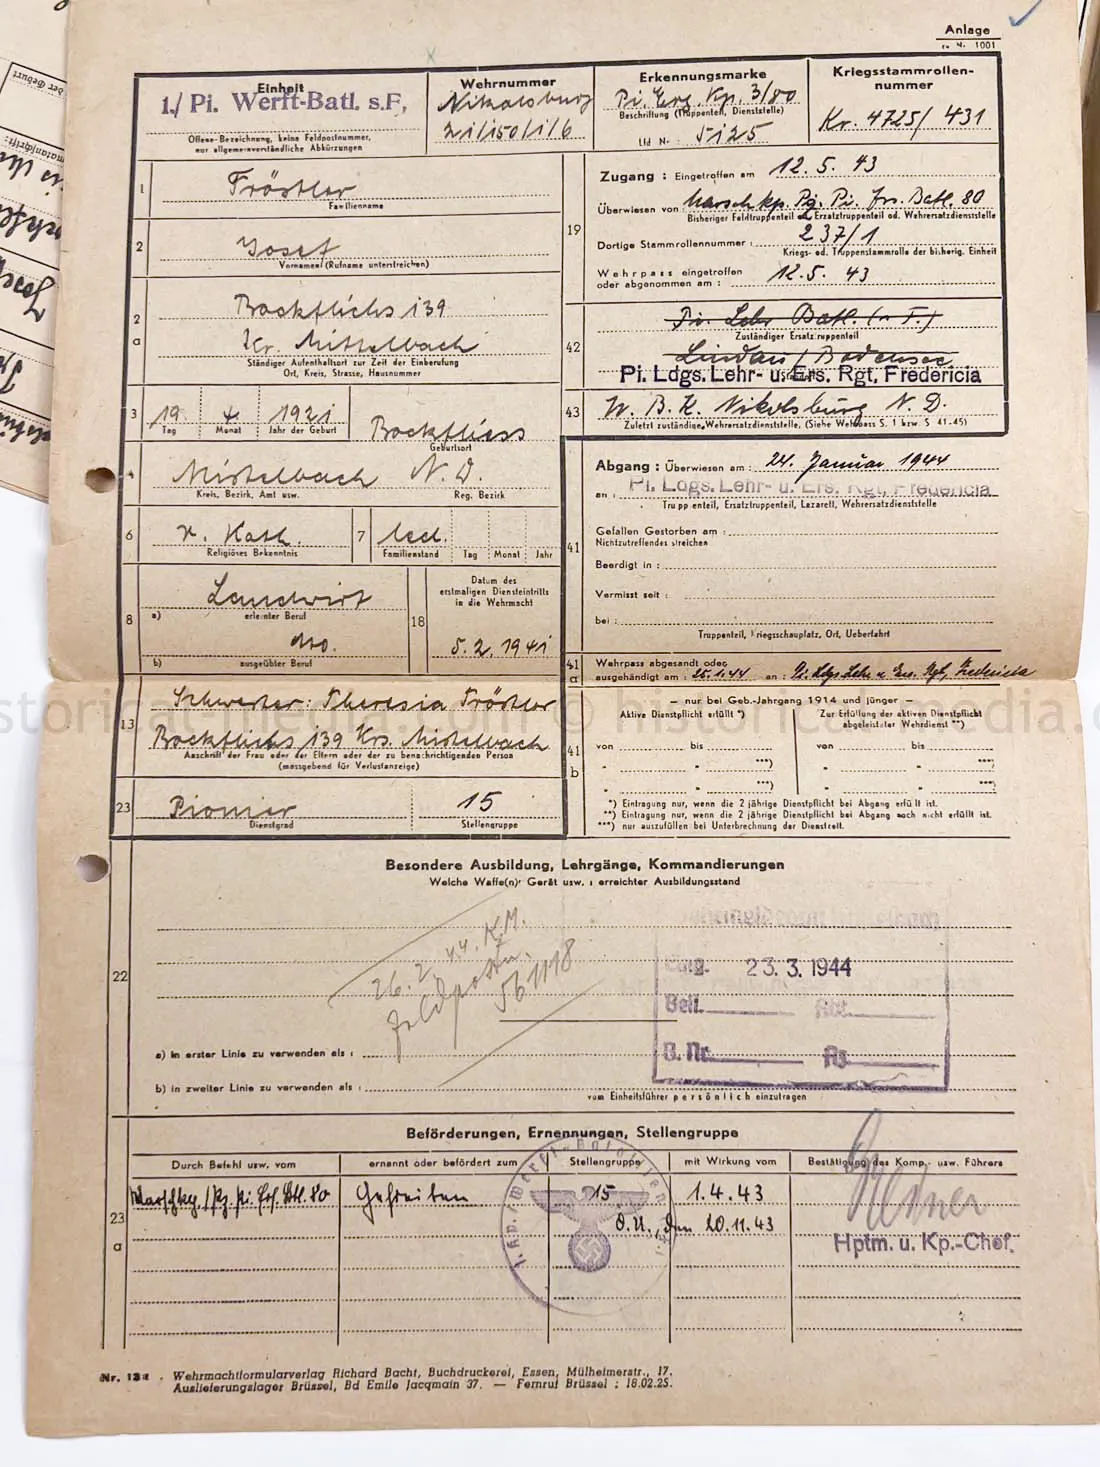 Anlage
1001
Einheit
1./ Pi. Werft-Batl. s.F,
Offene Bezeichnung, keine Feldpostnummer,
nur allgemeinverständliche Abkürzungen
Wehrnummer
Nikolsburg
21/150/1/6
Erkennungsmarke
Pi. Erg. Kp. 3/80
Beschriftung (Truppenteil, Dienststelle)
Lfd Nr: 5125
Kriegsstammrollen-
nummer
Kr. 4725/431
1
Tröstler
Familienname
2
Josef
Vornamen (Rufname unterstreichen)
2
a
Bockfliehs 139
Kr. Mistelbach
Ständiger Aufenthaltsort zur Zeit der Einberufung
Ort, Kreis, Strasse, Hausnummer
3
19 4 1921
Tag Monat Jahr der Geburt
Bockfliess
Geburtsort
4
Mistelbach N. D.
Kreis, Bezirk, Amt usw. Reg. Bezirk
6
r. Kath.
Religiöses Bekenntnis
7
led.
Familienstand Tag Monat Jahr
8
Landwirt
a) erlernter Beruf
dto.
b) ausgeübter Beruf
18
Datum des
erstmaligen Diensteintritts
in die Wehrmacht
5.2.1941
13
Schwester: Theresia Tröstler
Bockfliehs 139 Krs. Mistelbach
Anschrift der Frau oder der Eltern oder der zu benachrichtigenden Person
(massgebend für Verlustanzeige)
23
Pionier
Dienstgrad
15
Stellengruppe
19
Zugang : Eingetroffen am 12.5.43
Überwiesen von: Marschkp. Pz. Pi. Ers. Batl. 80
Bisheriger Feldtruppenteil Ersatztruppenteil od. Wehrersatzdienststelle
Dortige Stammrollennummer : 237/1
Kriegs- od. Truppenstammrolle der bisherig. Einheit
Wehrpass eingetroffen
oder abgenommen am : 12.5.43
42
Pi. Lehr Batl.
Zuständiger Ersatztruppenteil
Lindau/Bodensee
Pi. Ldgs. Lehr- u. Ers. Rgt, Fredericia
43
W. B. K. Nikolsburg N. D.
Zuletzt zuständige Wehrersatzdienststelle, (Siehe Wehrpass S. 1 bzw. S 41-45)
41
Abgang : Überwiesen am : 24. Januar 1944
an : Pi. Ldgs. Lehr- u. Ers. Rgt, Fredericia
Truppenteil, Ersatztruppenteil, Lazarett, Wehrersatzdienststelle
Gefallen Gestorben am :
Nichtzutreffendes streichen
Beerdigt in :
Vermisst seit :
bei :
Truppenteil, Kriegsschauplatz, Ort, Ueberfahrt
41
a
Wehrpass abgesandt oder
ausgehändigt am : 25.1.44 an : Pi. Ldgs. Lehr u. Ers. Rgt, Fredericia
41
b
— nur bei Geb.-Jahrgang 1914 und jünger —
Aktive Dienstpflicht erfüllt *)
Zur Erfüllung der aktiven Dienstpflicht
abgeleisteter Wehrdienst **)
von bis von bis
" " ***) " " ***)
" " ***) " " ***)
*) Eintragung nur, wenn die 2 jährige Dienstpflicht bei Abgang erfüllt ist.
**) Eintragung nur, wenn die 2 jährige Dienstpflicht bei Abgang noch nicht erfüllt ist.
***) nur auszufüllen bei Unterbrechung der Dienstzeit.
Besondere Ausbildung, Lehrgänge, Kommandierungen
Welche Waffe(n), Gerät usw. : erreichter Ausbildungsstand
22
26. 2. 44. K.M.
Feldpostn.
Eing. 23.3.1944
Beil.
B. Nr.
a) in erster Linie zu verwenden als :
b) in zweiter Linie zu verwenden als :
vom Einheitsführer persönlich einzutragen
Beförderungen, Ernennungen, Stellengruppe
Durch Befehl usw. vom ernannt oder befördert zum Stellengruppe mit Wirkung vom Bestätigung des Komp.- usw. Führers
23
a
Marschkp./Pz. Pi. Ers. Btl. 80 Gefreiten 15 1.4.43
O.U., den 20.11.43
Hptm. u. Kp.-Chef.
Wehrmachtformularverlag Richard Bacht, Buchdruckerei, Essen, Mülheimerstr., 17.
Auslieferungslager Brüssel, Bd Emile Jacqmain 37. — Fernruf Brüssel : 18.02.25.
© historical-media.com